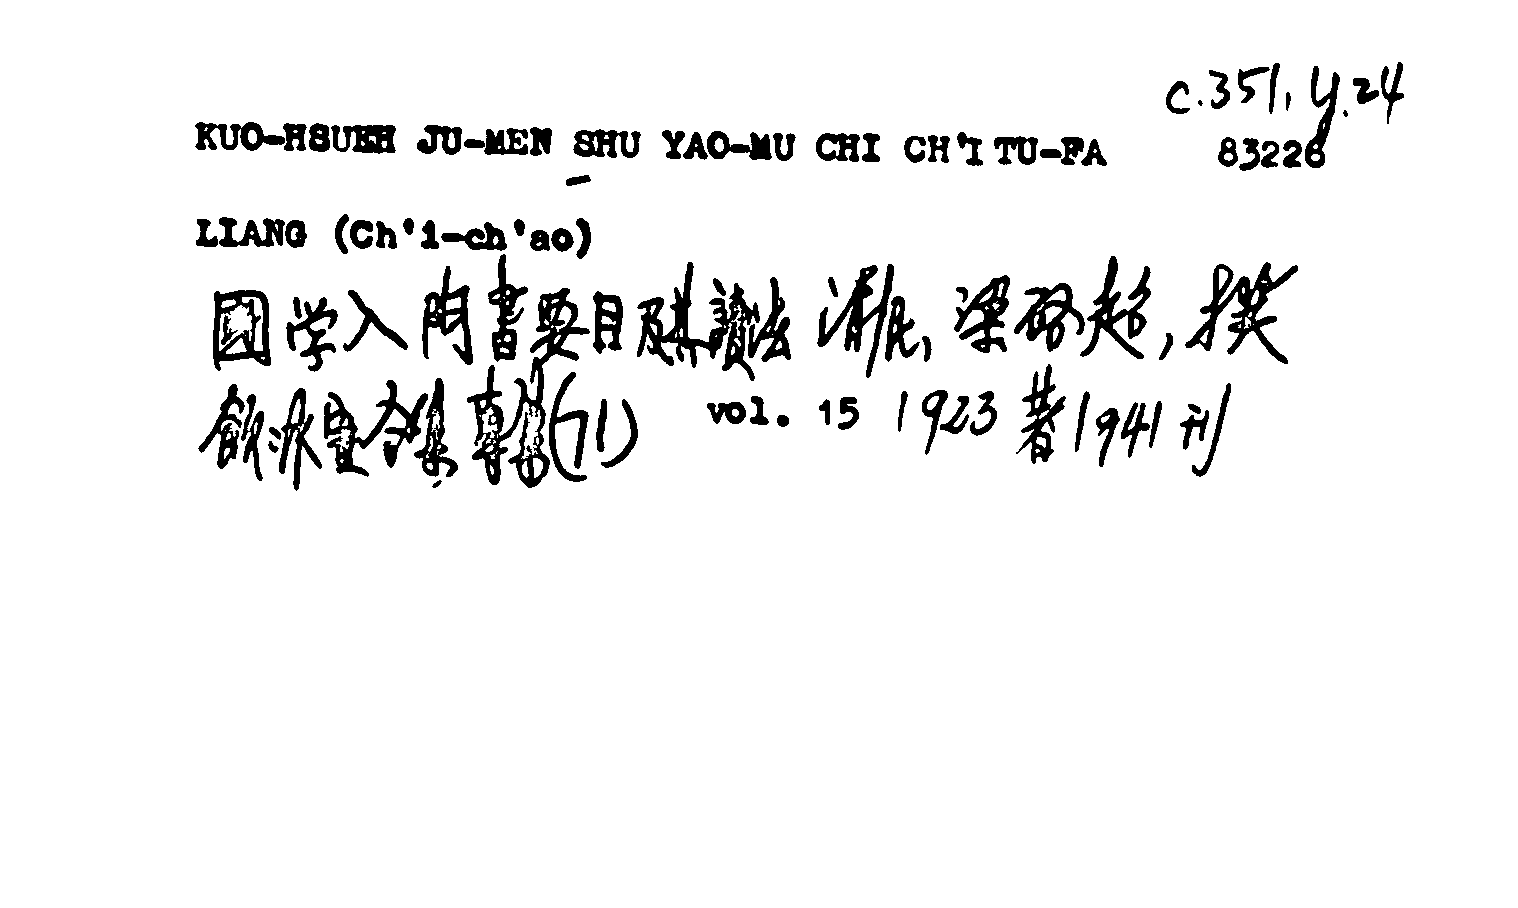 c.351, y.24
KUO-HSUEH JU-MEN SHU YAO-MU CHI CH'I TU-FA 83226
LIANG (Ch'i-ch'ao)
國学入門書要目及其讀法 清民, 梁啓超, 撰
飲冰室合集專集(71) vol. 15 1923著1941刊